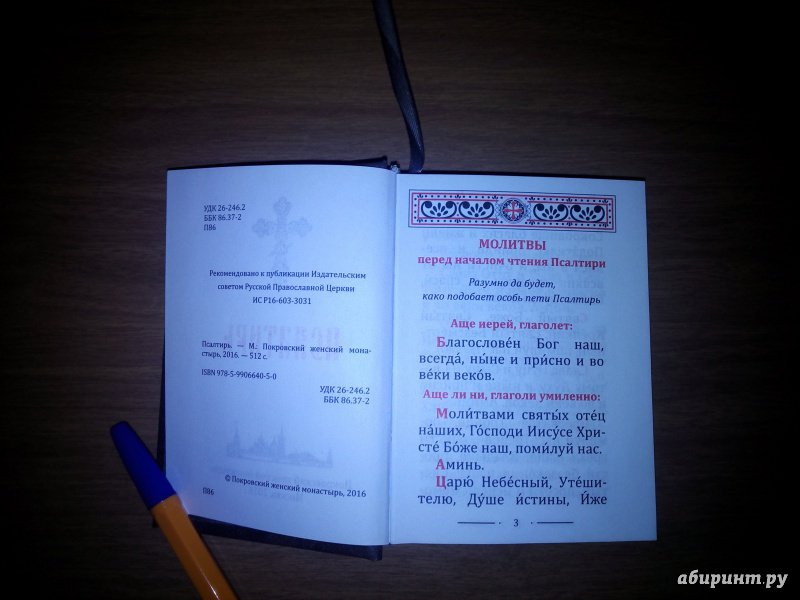 УДК 26-246.2
ББК 86.37-2
П86
Рекомендовано к публикации Издательским
советом Русской Православной Церкви
ИС Р16-603-3031
Псалтирь. — М.: Покровский женский мона-
стырь, 2016. — 512 с.
ISBN 978-5-9906640-5-0
УДК 26-246.2
ББК 86.37-2
© Покровский женский монастырь, 2016
П86
МОЛИТВЫ
перед началом чтения Псалтири
Разумно да будет,
како подобает особь пети Псалтирь
Аще иерей, глаголет:
Благослове́н Бог наш,
всегда́, ны́не и при́сно и во
ве́ки веко́в.
Аще ли ни, глаголи умиленно:
Моли́твами святы́х оте́ц
на́ших, Го́споди Иису́се Хри-
сте́ Бо́же наш, поми́луй нас.
Аминь.
Царю́ Небе́сный, Уте́ши-
телю, Ду́ше и́стины, И́же
3
абиринт.ру